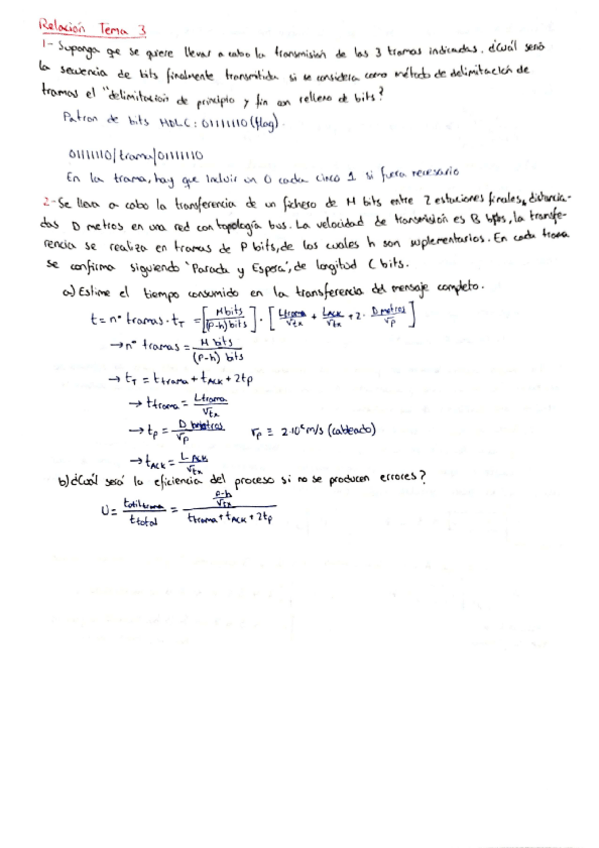 Relación Tema 3
1- Suponga que se quiere llevar a cabo la transmisión de las 3 tramas indicadas. ¿Cuál será
la secuencia de bits finalmente transmitida si se considera como método de delimitación de
tramas el "delimitación de principio y fin con relleno de bits?
Patron de bits HDLC: 01111110 (flag).
01111110/trama/01111110
En la trama, hay que incluir un 0 cada cinco 1 si fuera necesario
2- Se lleva a cabo la transferencia de un fichero de M bits entre 2 estaciones finales, distancia-
das D metros en una red con topología bus. La velocidad de transmisión es B bps, la transfe-
rencia se realiza en tramas de P bits, de los cuales h son suplementarios. En cada trama
se confirma siguiendo 'Parada y Espera', de longitud C bits.
a) Estime el tiempo consumido en la transferencia del mensaje completo.
t = nº tramas · t_T = [M bits / (P-h) bits] · [L_trama / V_tx + L_ACK / V_tx + 2 · D metros / V_p]
→ nº tramas = M bits / (P-h) bits
→ t_T = t_trama + t_ACK + 2t_p
→ t_trama = L_trama / V_tx
→ t_p = D metros / V_p V_p ≡ 2·10⁸ m/s (cableado)
→ t_ACK = L_ACK / V_tx
b) ¿Cuál será la eficiencia del proceso si no se producen errores?
U = t_util trama / t_total = (P-h / V_tx) / (t_trama + t_ACK + 2t_p)